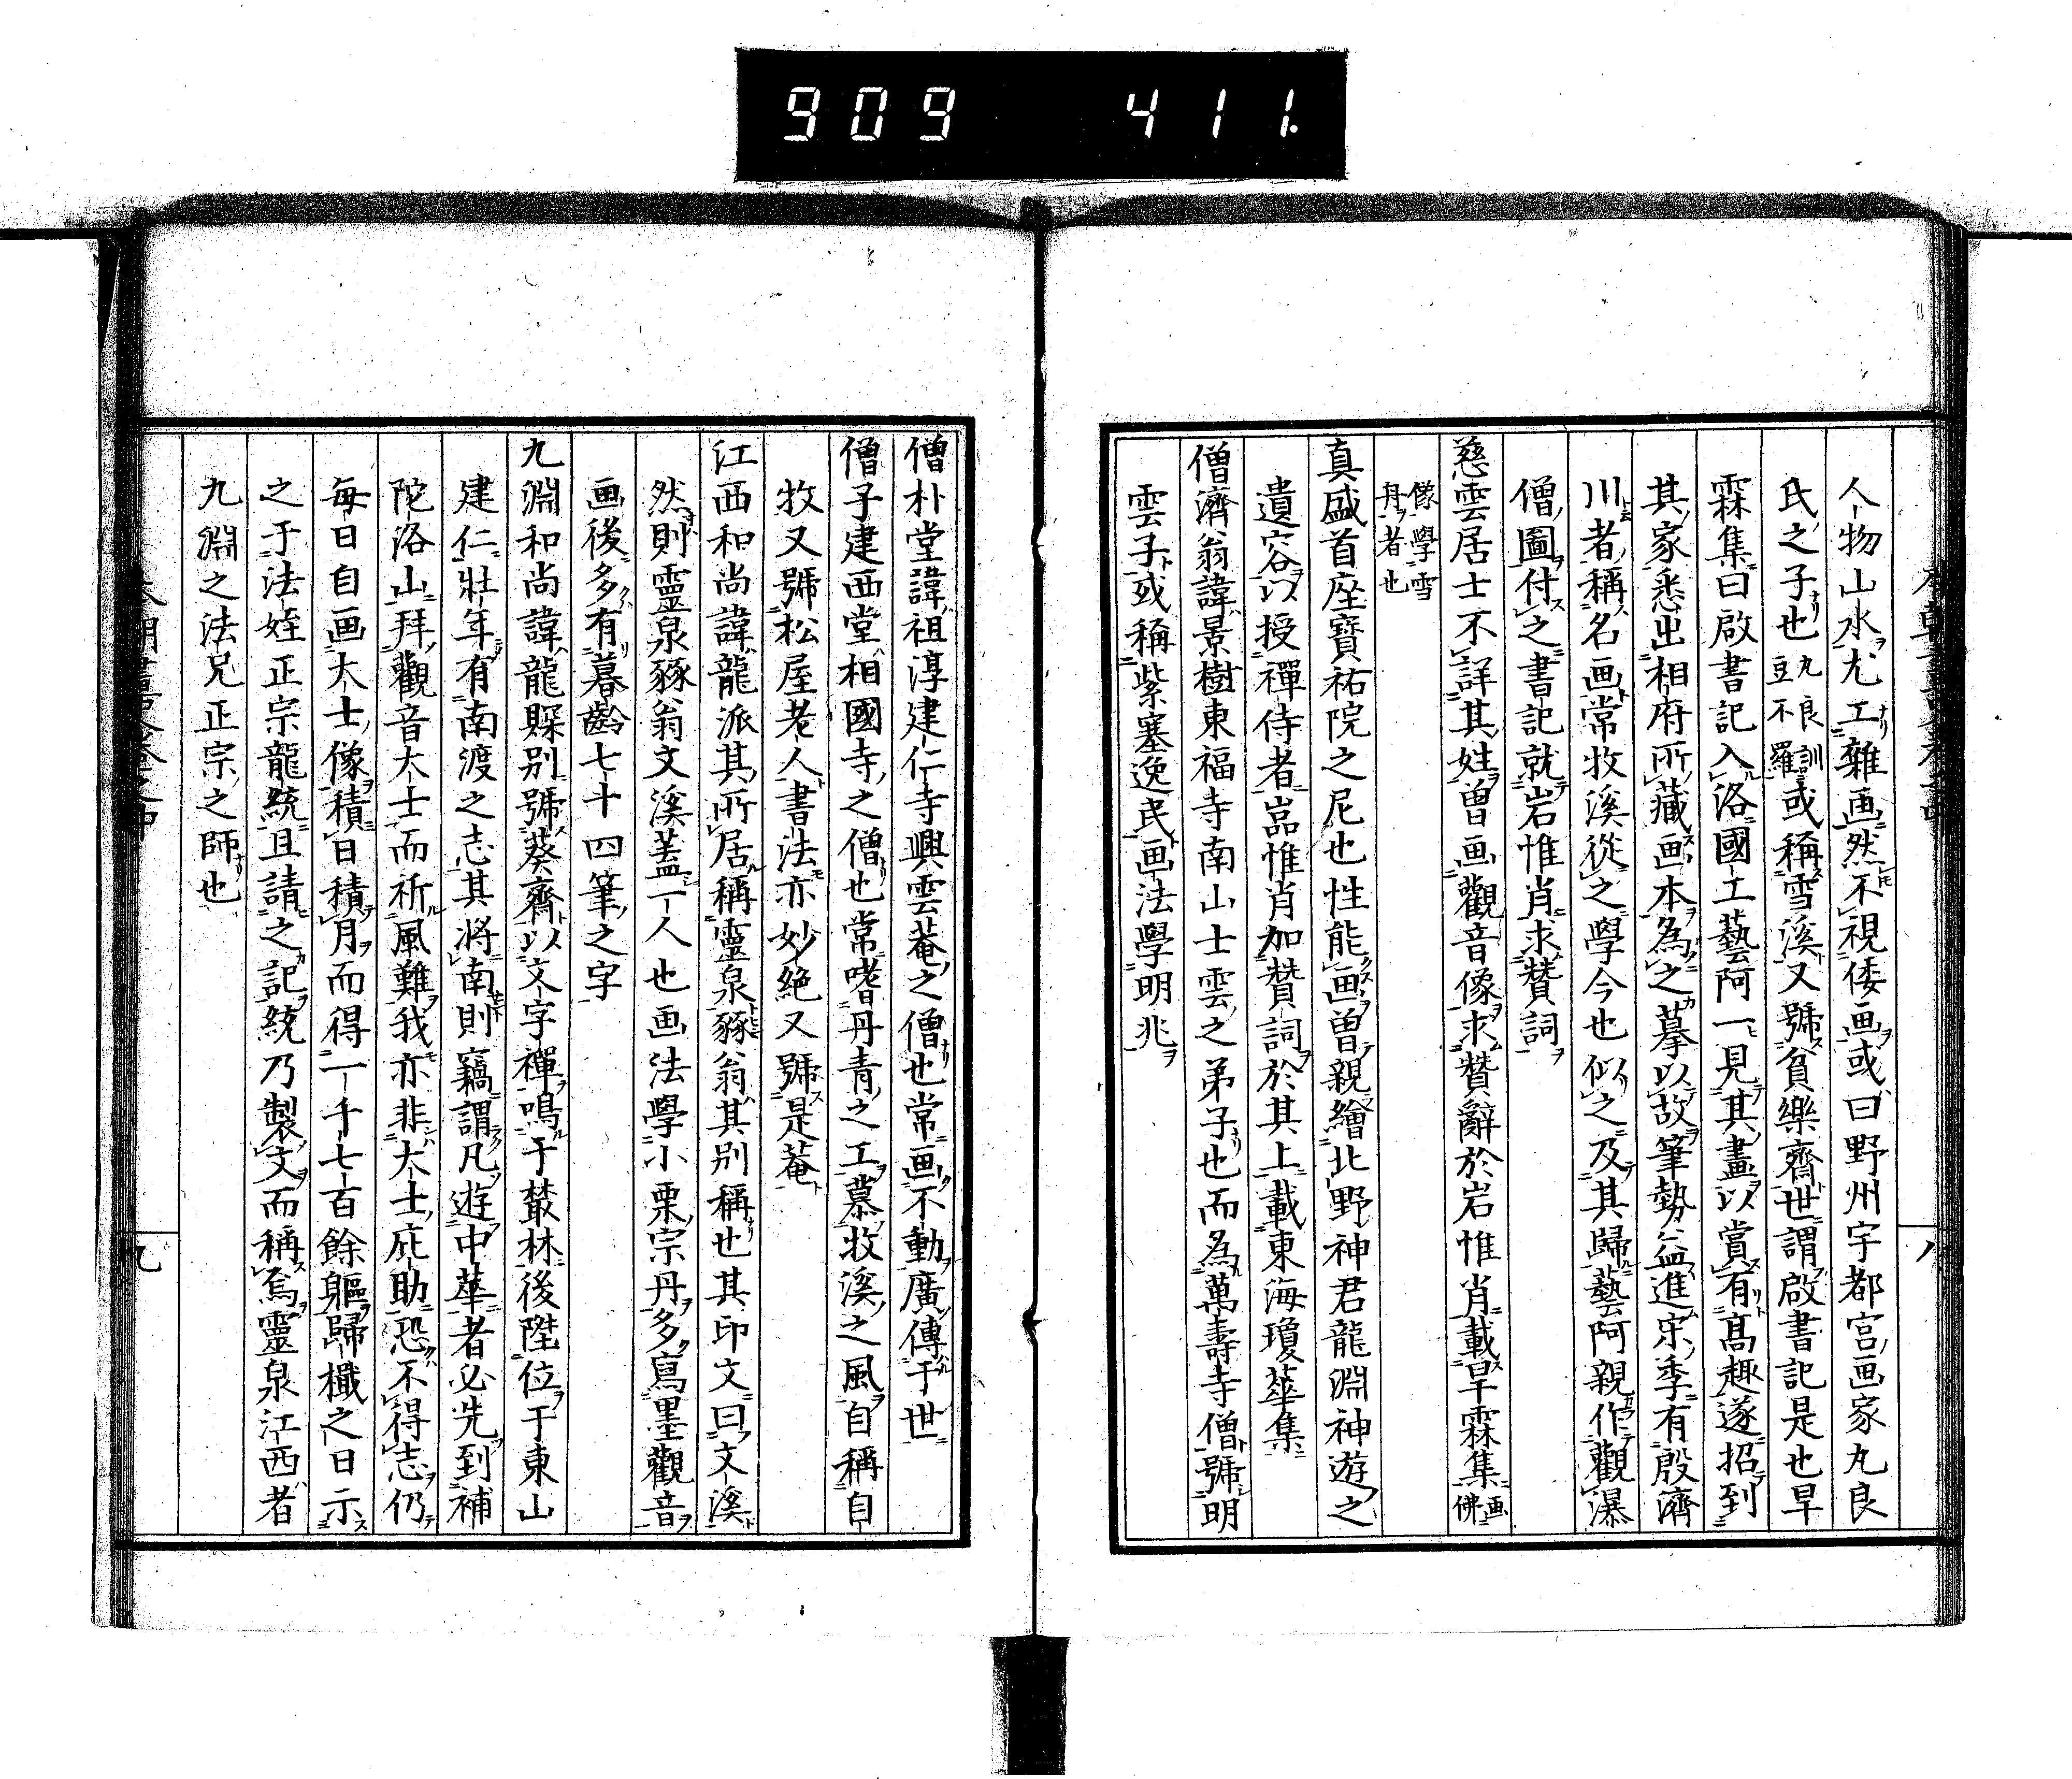 909 411.
人物山水尤工雜画然不視倭画或曰野州宇都宮画家丸良
氏之子也丸良訓豆不羅或稱雪溪又號貧樂齋世謂啟書記是也旱
霖集曰啟書記入洛國工藝阿一見其畫以賞有髙趣遂招到
其家悉出相府所藏画本為之摹以故筆勢益進宋季有殷濟
川者稱名画常牧溪從之學今也似之及其歸藝阿親作觀瀑
僧圖付之書記就岩惟肖求賛詞
慈雲居士不詳其姓曽画觀音像求賛辭於岩惟肖載旱霖集画佛
像學雪丹者也
真盛首座寳祐院之尼也性能画曽親繪北野神君龍淵神遊之
遺容以授禪侍者嵓惟肖加賛詞於其上載東海瓊華集
僧濟翁諱景樹東福寺南山士雲之弟子也而為萬壽寺僧號明
雲子或稱紫塞逸民画法學明兆
僧朴堂諱祖淳建仁寺興雲菴之僧也常画不動廣傳于世
僧子建西堂相國寺之僧也常嗜丹青之工慕牧溪之風自稱自
牧又號松屋老人書法亦妙絶又號是菴
江西和尚諱龍派其所居稱靈泉豩翁其别稱也其印文曰文溪
然則靈泉豩翁文溪葢一人也画法學小栗宗丹多寫墨觀音
画後多有暮齡七十四筆之字
九淵和尚諱龍賝别號葵齋以文字禪鳴于叢林後陞位于東山
建仁壯年有南渡之志其將南則竊謂凡遊中華者必先到補
陀洛山拜觀音大士而祈風難我亦非大士庇助恐不得志仍
每日自画大士像積日積月而得一千七百餘軀歸檥之日示
之于法姪正宗龍統且請之記統乃製文而稱焉靈泉江西者
九淵之法兄正宗之師也
九